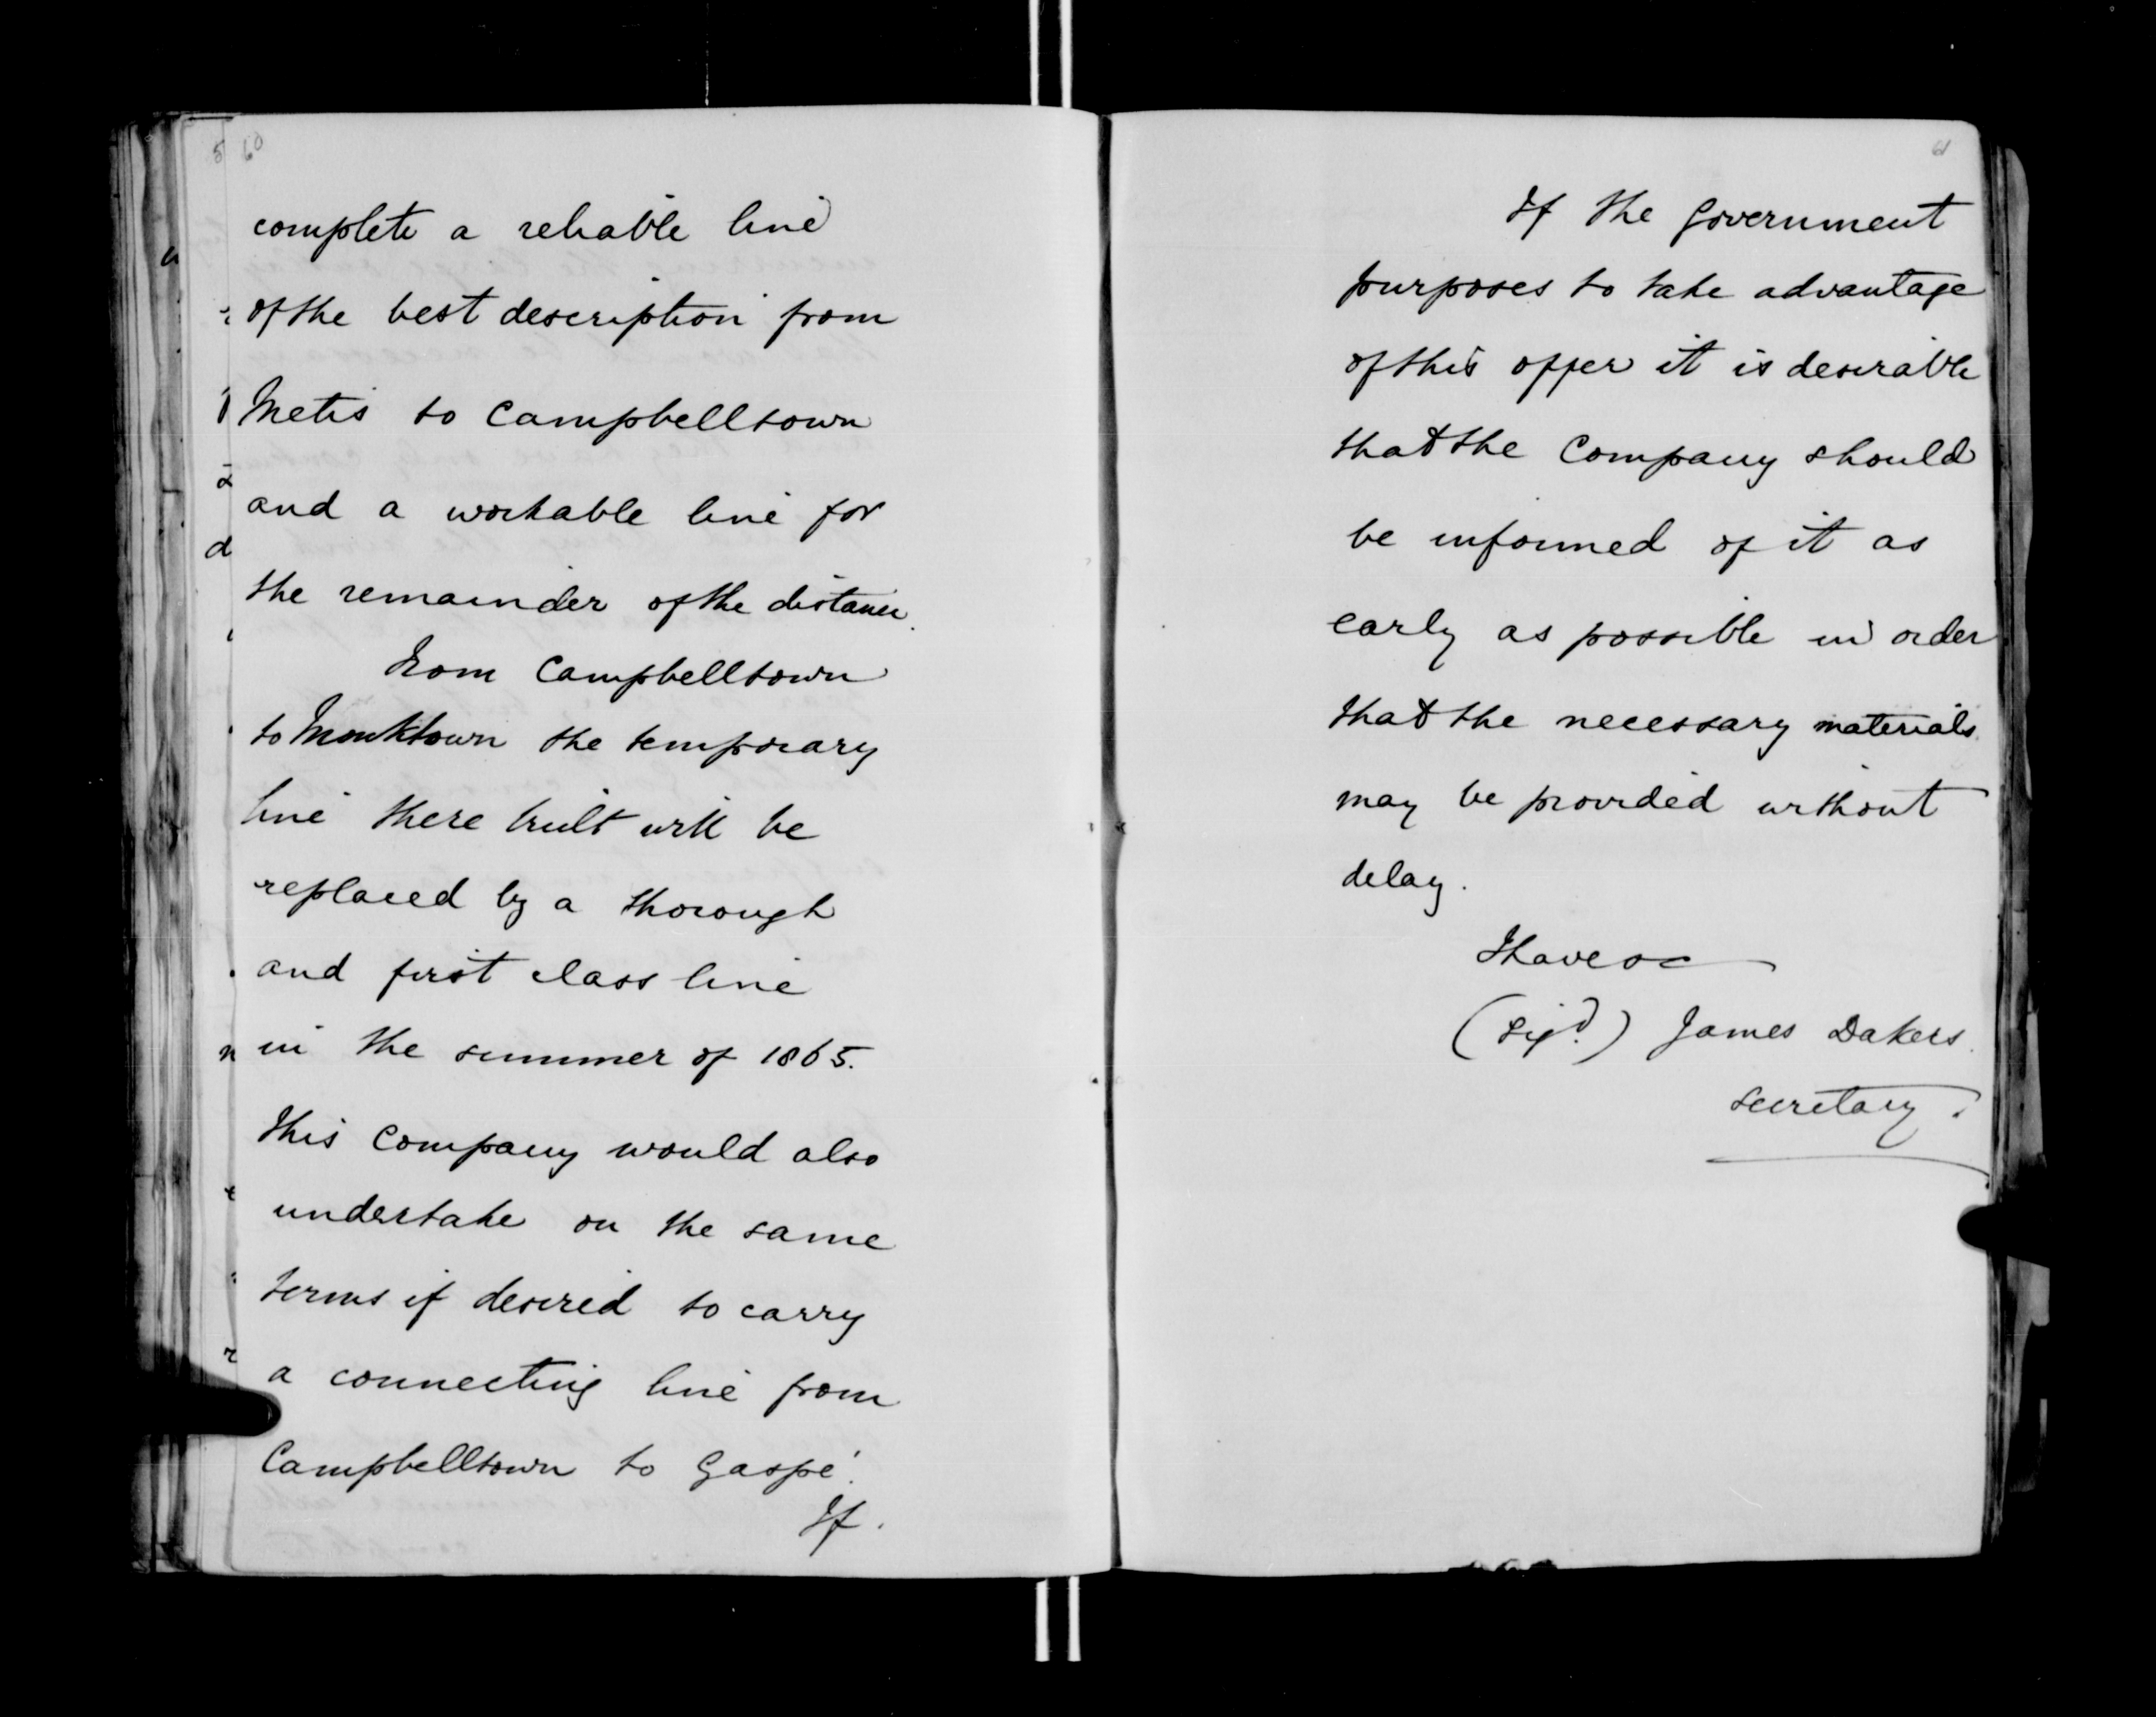 60
complete a reliable line
of the best description from
Metis to Campbelltown
and a workable line for
the remainder of the distance.
From Campbelltown
to Monktown the temporary
line there built will be
replaced by a thorough
and first class line
in the summer of 1865.
This Company would also
undertake on the same
terms if desired to carry
a connecting line from
Campbelltown to Gaspé.
If.
61
If the Government
purposes to take advantage
of this offer it is desirable
that the Company should
be informed of it as
early as possible in order
that the necessary materials
may be provided without
delay.
I have &c
(Sigd.) James Dakers.
Secretary.